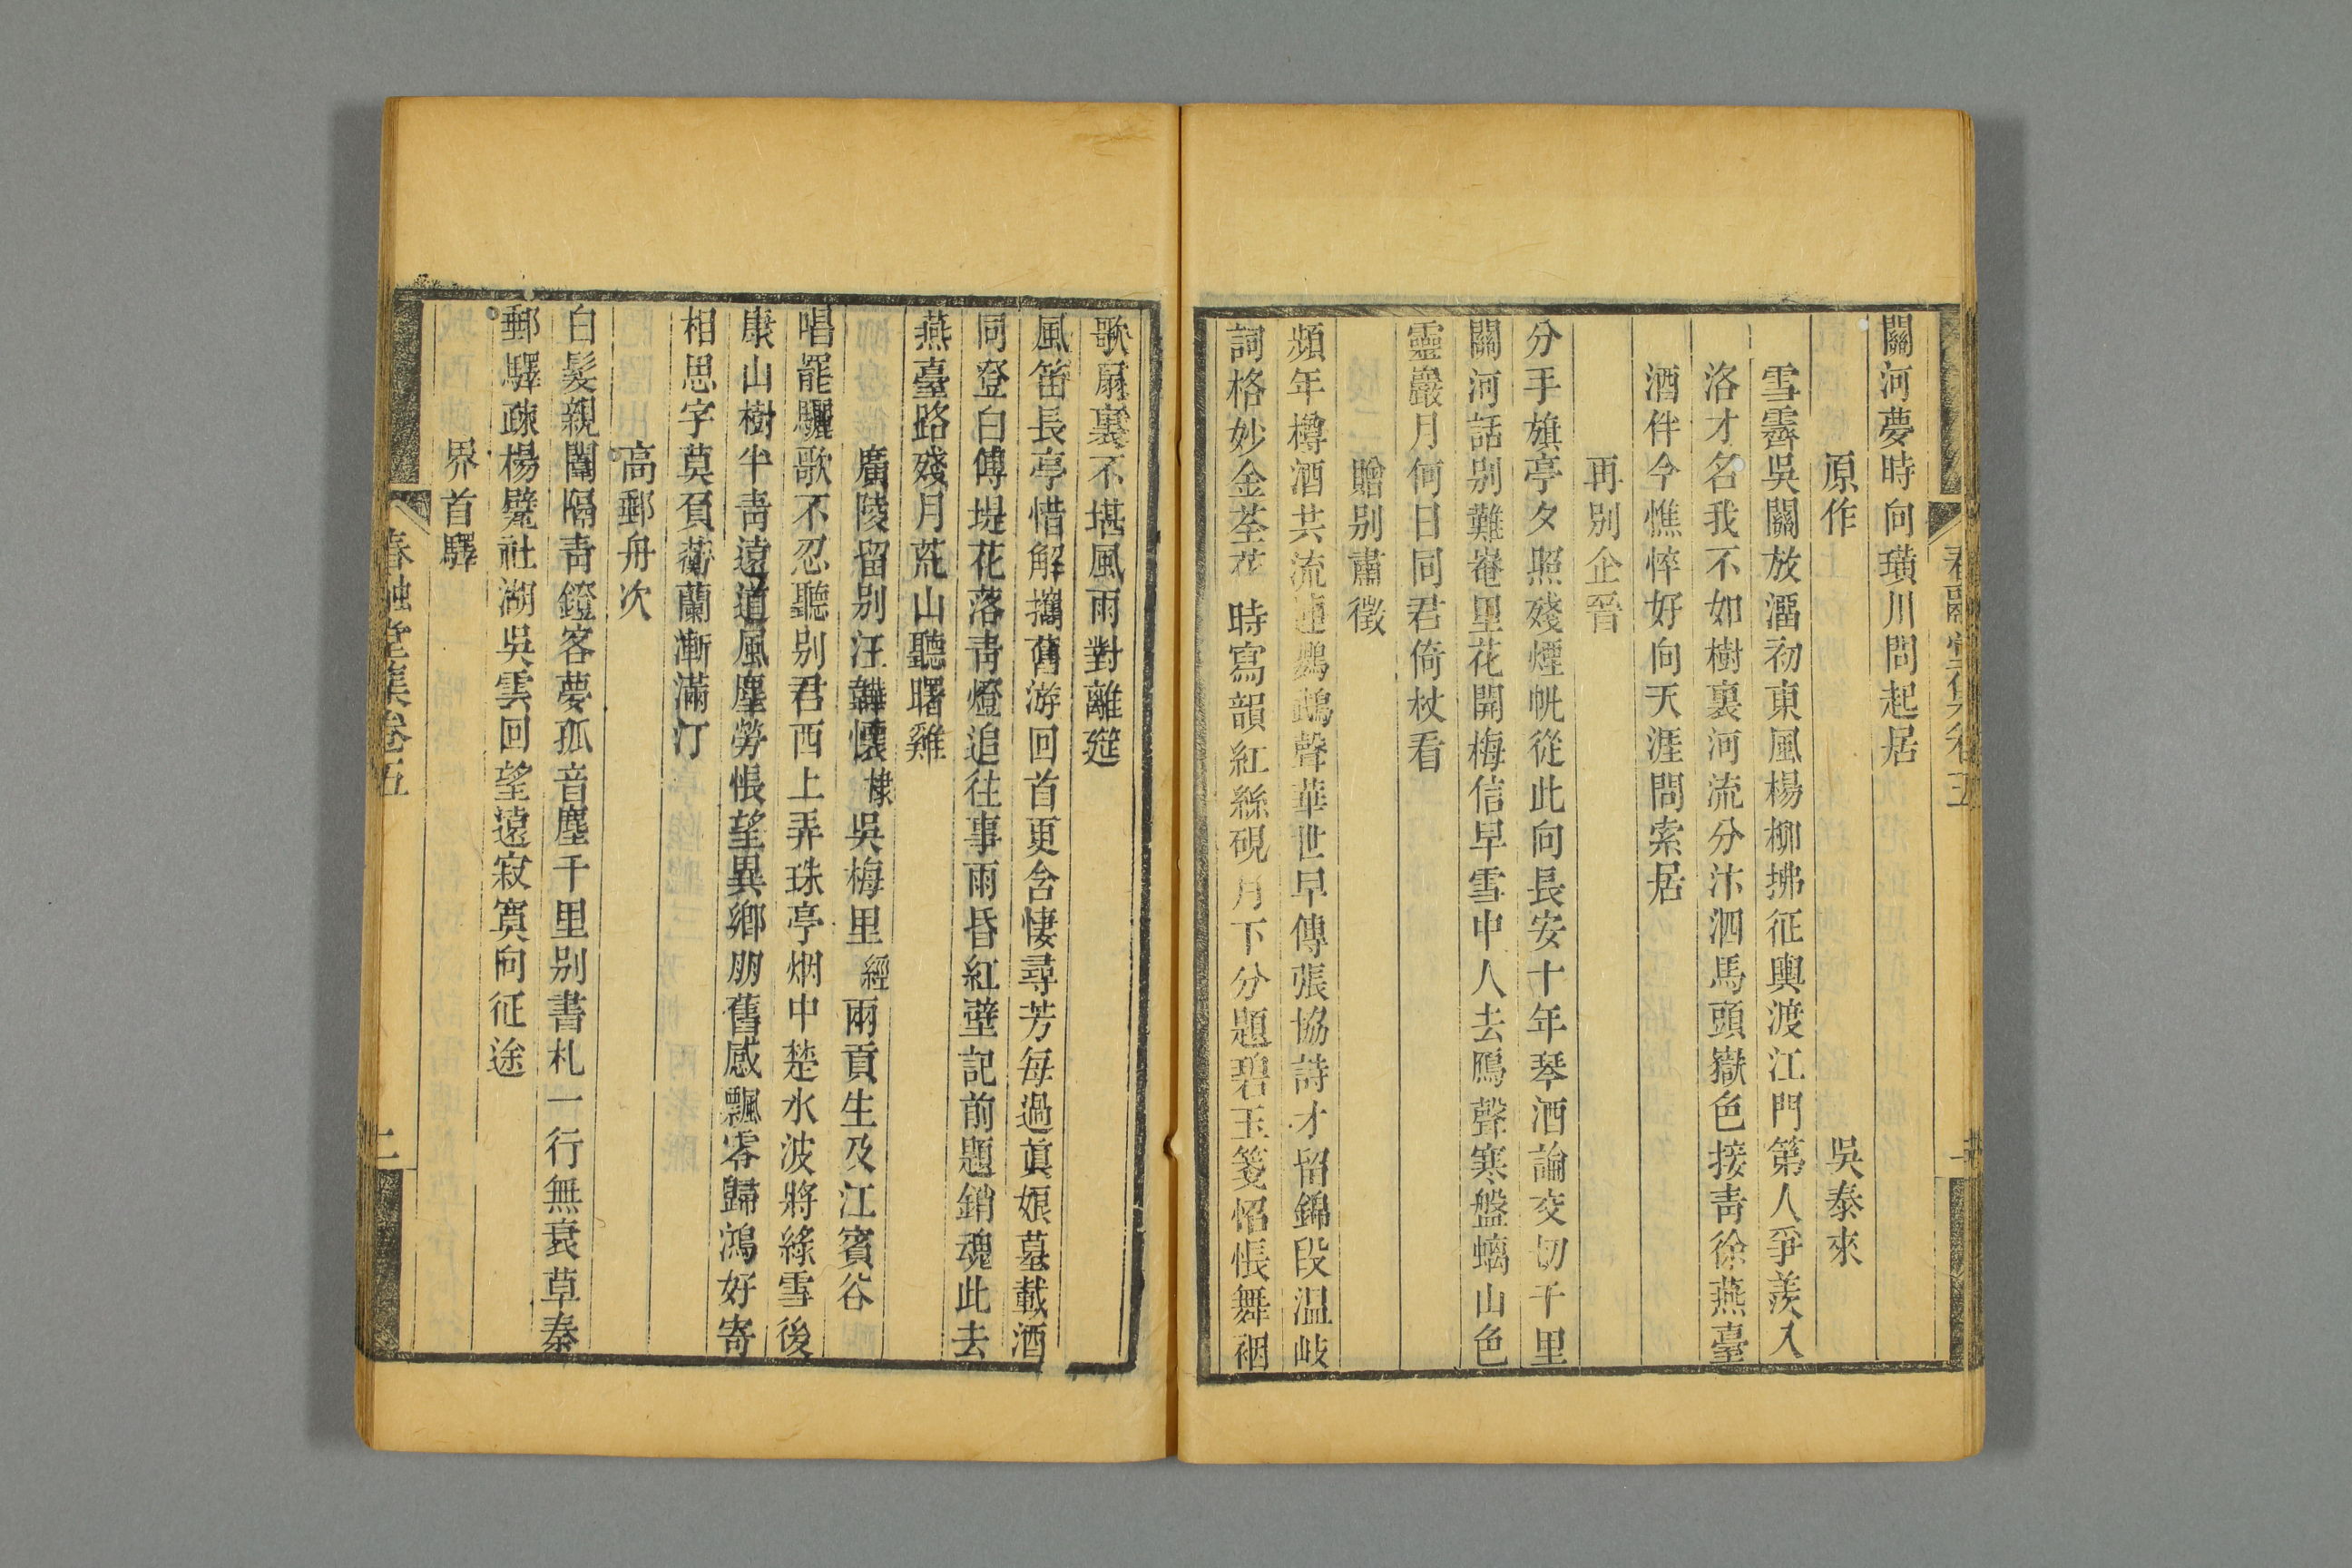 關河夢時向璜川問起居
原作 吳泰來
雪霽吳關放溜初東風楊柳拂征輿渡江門第人爭羨入
洛才名我不如樹裏河流分汴泗馬頭嶽色接青徐燕臺
酒伴今憔悴好向天涯問索居
再别企晉
分手旗亭夕照殘煙帆從此向長安十年琴酒論交切千里
關河話别難菴里花開梅信早雪中人去鴈聲寒盤螭山色
靈巖月何日同君倚杖看
贈别肅徵
頻年樽酒共流連鸚鵡聲華世早傳張協詩才留錦段温岐
詞格妙金荃花時寫韻紅絲硯月下分題碧玉箋怊悵舞裀
歌扇裏不堪風雨對離筵
風笛長亭惜解攜舊游回首更含悽尋芳每過眞娘墓載酒
同登白傅堤花落青燈追往事雨昏紅壁記前題銷魂此去
燕臺路殘月荒山聽曙雞
廣陵留别汪韡懷棣吳梅里經兩貢生及江賓谷
唱罷驪歌不忍聽别君西上弄珠亭烟中楚水波將綠雪後
康山樹半青遠道風塵勞悵望異鄉朋舊感飄零歸鴻好寄
相思字莫負蘅蘭漸滿汀
高郵舟次
白髮親闈隔青鐙客夢孤音塵千里别書札一行無衰草秦
郵驛疎楊甓社湖吳雲回望遠寂寞向征途
界首驛
春融堂集卷五
二